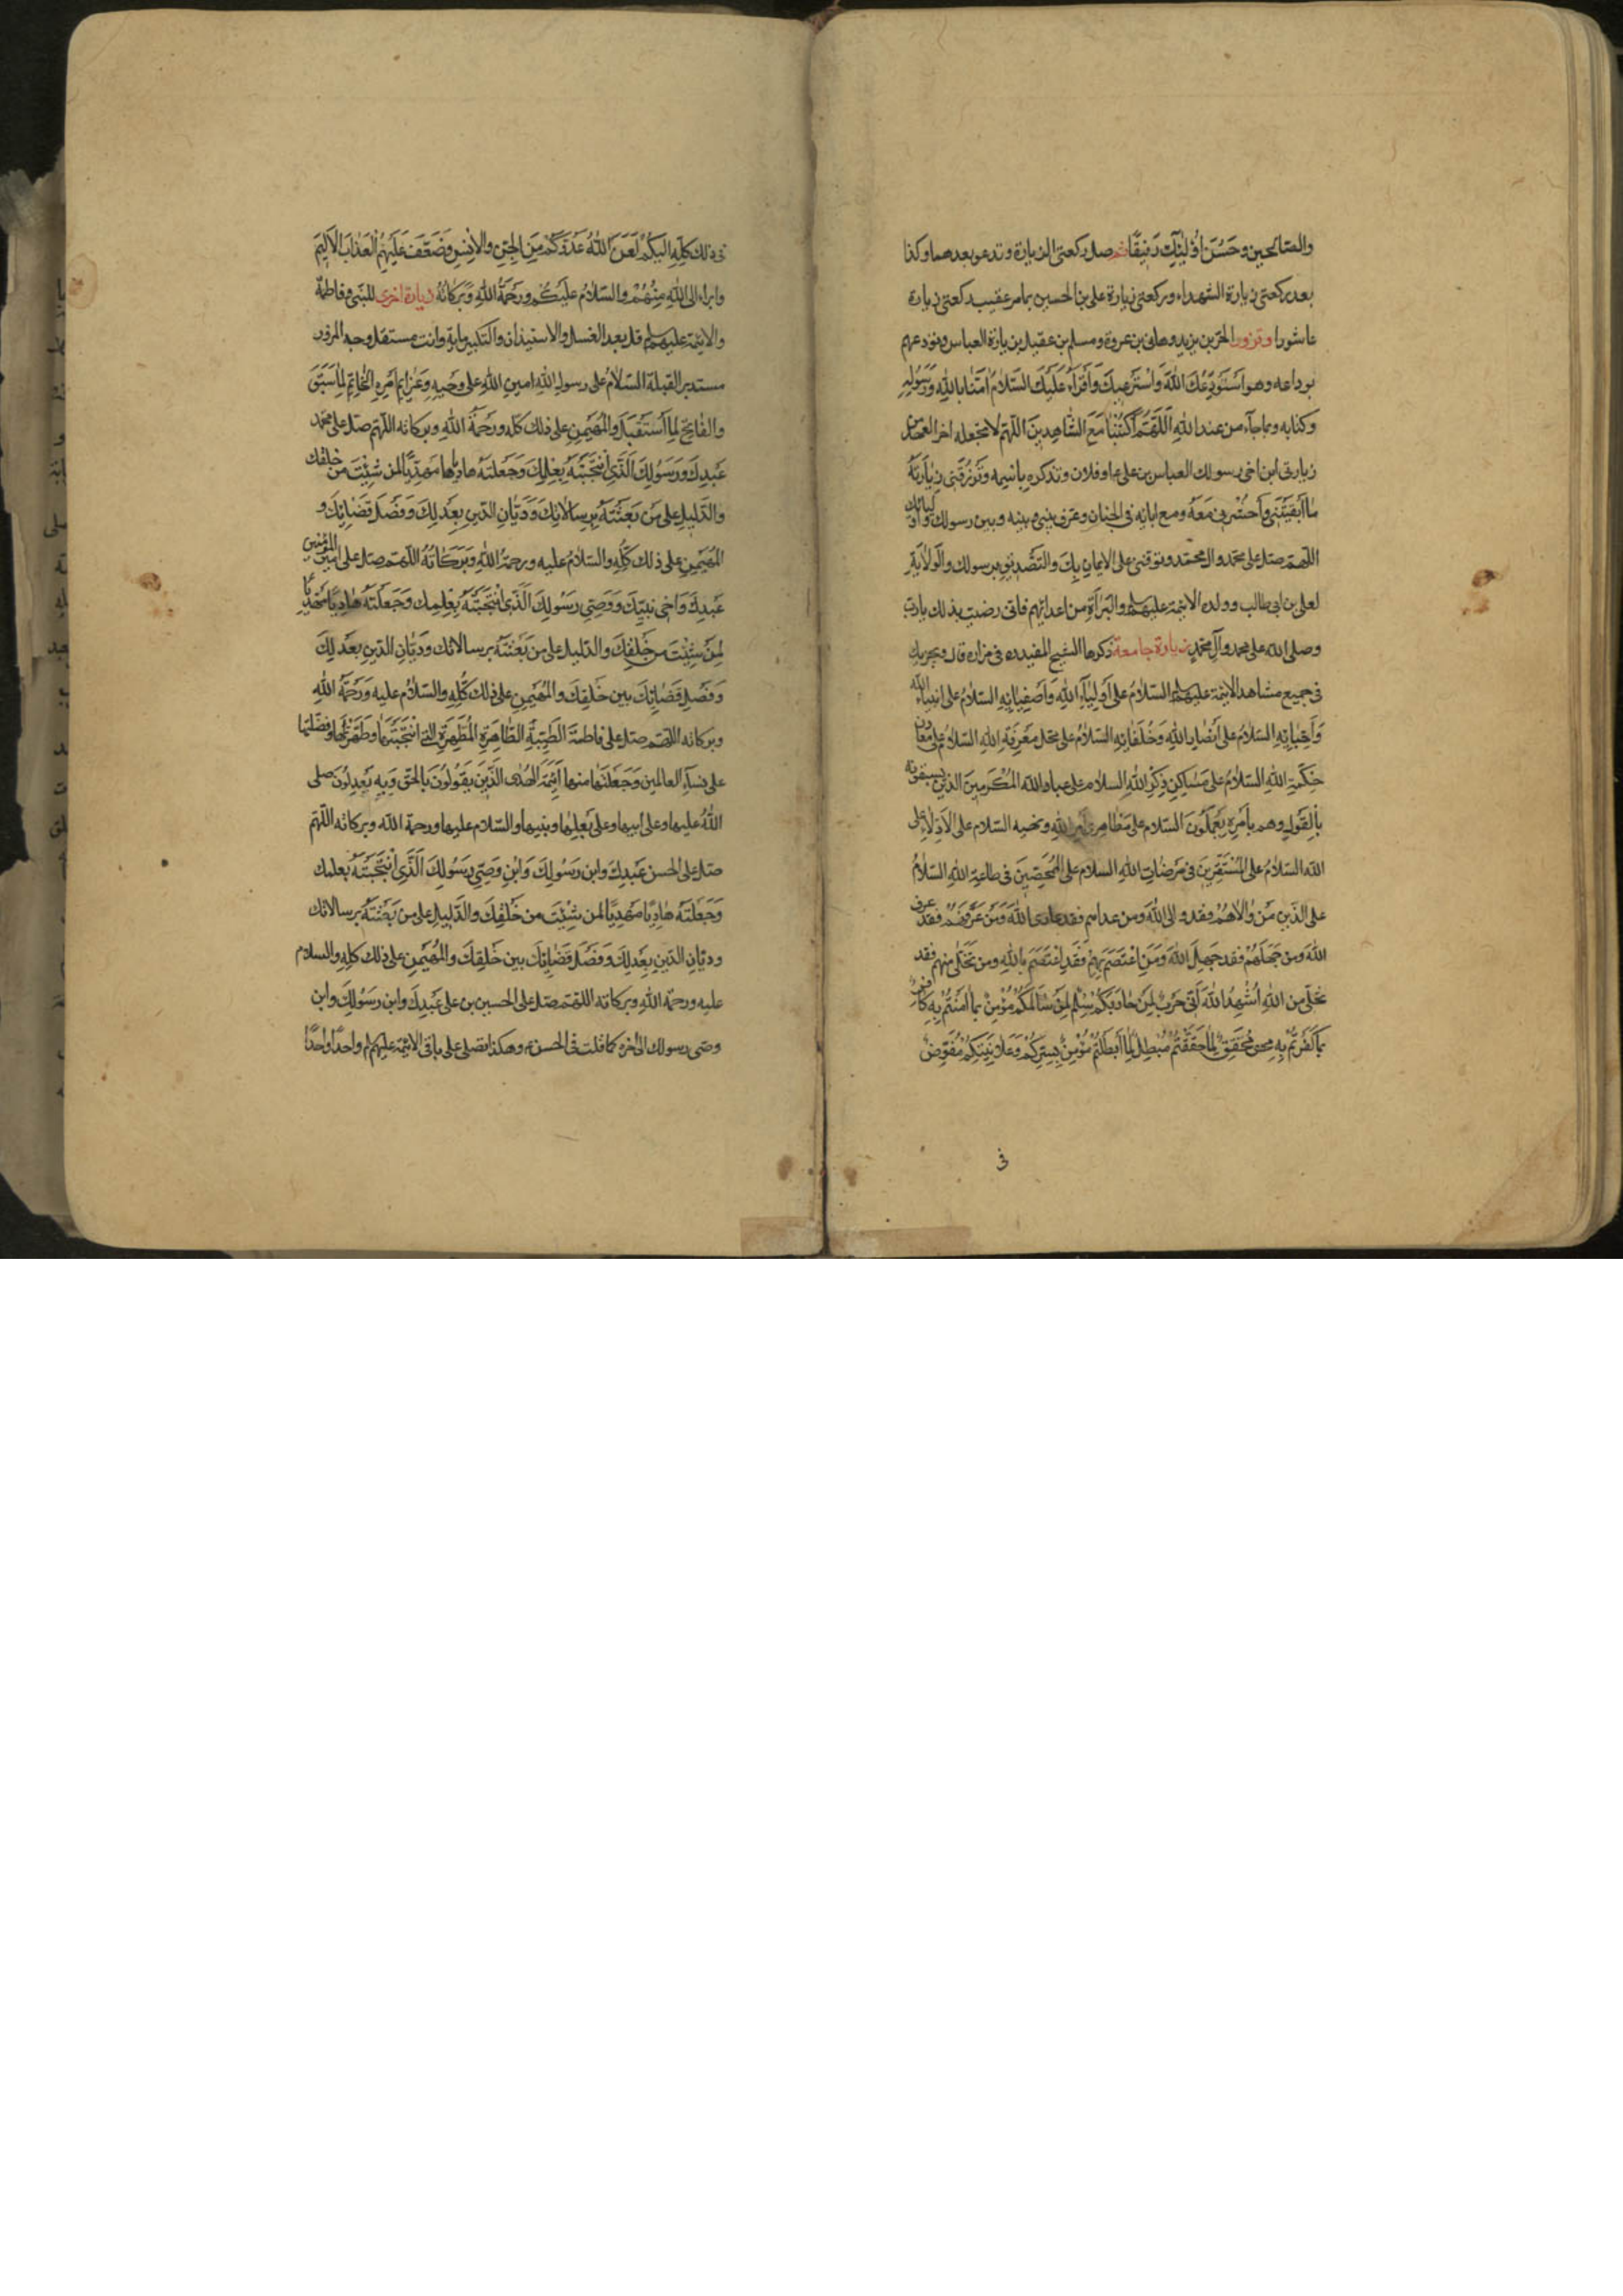 والصّالحين وحَسُنَ اُولٰئِكَ رَفيقًا ثم صل ركعتى الزيارة وتدعو بعدهما وكذا
بعد ركعتى زيارة الشهداء وركعتى زيارة على بن الحسين بما مر عقيب ركعتى زيارة
عاشورا وتزور الحرّ بن يزيد وهانى بن عروة ومسلم بن عقيل بزيارة العباس وتودعهم
بوداعه وهو اَسْتَودِعُكَ اللهَ وَاسْتَرعيكَ وَاَقرَاُ عَلَيْكَ السَّلامُ امَنّا بِاللهِ وَرَسُولِهِ
وكتابه وبما جاء من عند اللهِ اَللّهُمَّ اكْتُبْنا مَعَ الشّاهِدينَ اللّهم لا تجعله اخر العهد من
زيارتى ابن اخى رسولك العباس بن على ع او فلان وتذكره باسمه وَتَرزُقَنى زِيارَتَهُ
ما اَبْقَيْتَنى وَاحْشُرنى مَعَهُ ومع ابائه فى الجنان وعرف بينى وبينه وبين رسولك واوليائك
اللّهمّ صلّ على محمّد وال محمّد وتوفنى على الايمان بِكَ والتّصديقِ برسولك والوَلايَةِ
لعلى بن ابى طالب وولده الائمة عليهم السلام والبَراءَةِ من اعدائهم فانى رضيت بذلك يا ربّ
وصلى الله على محمد وآل محمّدٍ زيارة جامعة ذكرها الشيخ المفيد ره فى مزاره قال وتجزيك
فى جميع مشاهد الائمة عليهم السلام السَّلامُ على اَولِياءِ اللهِ وَاَصفِيائِهِ السلامُ على اُمَناءِ الله
وَاَحِبّائِهِ السَّلامُ على اَنصارِ اللهِ وَخُلَفائِهِ السَّلامُ على محل مَعرِفَةِ اللهِ السلامُ على مَعادِن
حِكْمَةِ اللهِ السَّلامُ على مَساكِنِ ذِكْرِ اللهِ السلام على عباد الله المُكْرَمينَ الذين لا يسبقونه
بالقَولِ وهم بِاَمرِه يَعْمَلُونَ السّلام على مَظاهِرِى اَمرِ اللهِ ونهيه السّلام على الاَدِلّاءِ على
الله السَّلامُ على المُستَقِرّينَ فى مَرضاتِ اللهِ السلام على المُمَحِّصينَ فى طاعةِ اللهِ السَّلامُ
على الذّين مَنْ والاهُمْ فقد والى اللهَ ومن عداهم فقد عادى اللهَ وَمَنْ عَرَفَهُمْ فقد عرف
اللهَ ومن جَهِلَهُمْ فقد جَهِلَ اللهَ وَمَنِ اعْتَصَمَ بِهِمْ فَقَدِ اعْتَصَمَ بِاللهِ ومن تَخَلّى منهم فقد
تخلّى من اللهِ اُشْهِدُ اللهَ اَنّى حَربٌ لِمَنْ حارَبَكُمْ سِلْمٌ لِمَنْ سالَمَكُمْ مُؤمِنٌ بما امَنتُمْ بِهِ كافرٌ
بما كَفَرتُمْ بِهِ مُحَقِّقٌ لِما حَقَّقْتُمْ مُبْطِلٌ لِما اَبْطَلْتُمْ مُؤْمِنٌ بِسِرِّكُمْ وَعَلانِيَتِكُمْ مُفَوِّضٌ
فى
فى ذلك كُلِّهِ اليكُمْ لَعَنَ اللهُ عَدُوَّكُمْ مِنَ الجِنِّ والاِنسِ وَضَعَّفَ عَلَيْهِمُ العَذابَ الاَليمَ
وابراء الى اللهِ مِنْهُمْ والسّلامُ عليكُم ورَحمَةُ اللهِ وَبَركاتُهُ زيارة اخرى للنبى وفاطمة
والائمة عليهم السلام قل بعد الغسل والاستيذان والتكبير ماية وانت مستقبل وجه المزور
مستدبر القبلة السّلامُ على رسول اللهِ امينِ اللهِ على وَحيِهِ وَعَزائِمِ اَمرِهِ الخاتِمِ لِما سَبَقَ
والفاتِحِ لما اسْتَقْبَلَ والمُهَيْمِنِ على ذلك كلّه ورحمَةُ اللهِ وبركاته اللّهم صلّ على محمّد
عَبدِكَ وَرَسُولِكَ الّذى انْتَجَبْتَهُ بِعِلمِكَ وَجَعَلتَهُ هاديًا مهديًّا لمن شِئْتَ من خلقك
والدَّليلِ على مَنْ بَعَثْتَهُ بِرِسالاتِكَ وَدَيّانِ الدّينِ بِعَدلِكَ وَفَصلِ قَضائِكَ و
المُهَيْمِنِ على ذلك كُلِّهِ والسّلامُ عليه ورحمةُ اللهِ وَبَرَكاتُهُ اللّهمّ صلّ على امير المؤمنين
عَبدِكَ وَاخى نبيّكَ وَوَصِىِّ رَسُولِكَ الَّذى انْتَجَبْتَهُ بِعِلمِك وَجَعَلتَهُ هادِيًا مَهْدِيًّا
لِمَنْ شِئْتَ من خَلقِكَ والدّليل على من بَعَثْتَهُ برسالاتك ودَيّانِ الدّينِ بِعَدلِكَ
وَفَصلِ قَضائِكَ بين خَلقِكَ والمُهَيْمِنِ على ذلك كُلِّهِ والسّلامُ عليه وَرَحمَةُ اللهِ
وبركاته اللّهمّ صلّ على فاطمةَ الطَّيِّبَةِ الطّاهِرَةِ المُطَهَّرَةِ الّتى انْتَجَبْتَها وطَهَّرتَها وفَضَّلتَها
على نساءِ العالمين وَجَعَلتَ منها اَئِمَّةَ الهُدى الّذينَ يَقُولُونَ بالحقِّ وَبِهِ يَعدِلُونَ صلى
اللهُ عليها وعلى ابيها وعلى بَعلِها وبنيها والسّلام عليها ورحمة الله وبركاته اللّهمّ
صَلِّ على الحسن عَبدِكَ وابن رَسُولِكَ وَابنِ وَصِىِّ رَسُولِكَ الّذى انْتَجَبْتَهُ بعلمك
وَجَعَلتَهُ هادِيًا مَهديًّا لمن شِئْتَ من خَلقِكَ والدّليلِ على من بَعَثْتَهُ برسالاتك
وديّانِ الدّينِ بِعَدلِكَ وَفَصلِ قَضائِكَ بين خَلقِكَ والمُهَيْمِنِ على ذلك كلِّهِ والسلام
عليه ورحمة اللهِ وبركاته اللّهمّ صلّ على الحسين بن على عَبدِكَ وابن رَسُولِكَ وابن
وصى رسولك الى اخره كما قلت فى الحسن ع وهكذا تصلى على باقى الائمة عليهم السلام واحدًا واحدًا